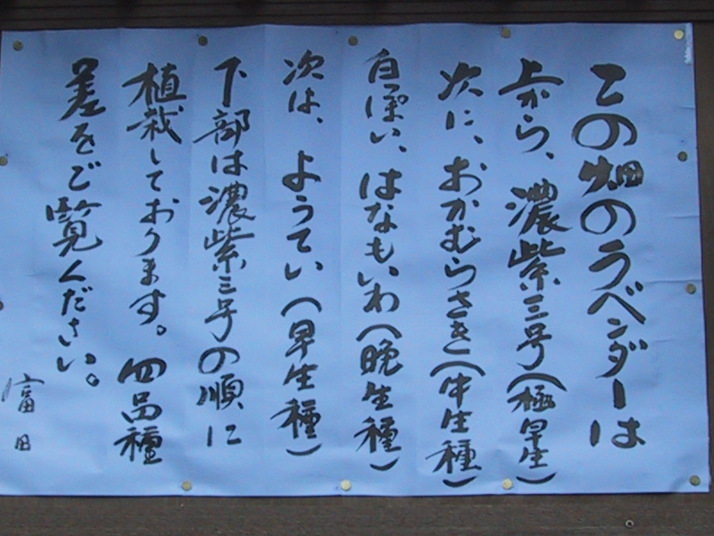 この畑のラベンダーは
上から、濃紫三号(極早生)
次に、おかむらさき(中生種)
白ぽい、はなもいわ(晩生種)
次は、ようてい(早生種)
下部は濃紫三号の順に
植栽しております。四品種
差をご覧ください。
富田